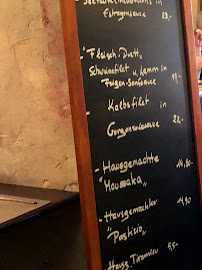 in
Estragonsauce
"Fleisch-Duett"
Schweinefilet u. Lamm in
Feigen-Senfsauce 19.-
Kalbsfilet in
Gorgonzolasauce 22.-
Hausgemachte
"Moussaka" 14,90
Hausgemachter
"Pastizio" 14,90
Hausg. Tiramisu 5,50